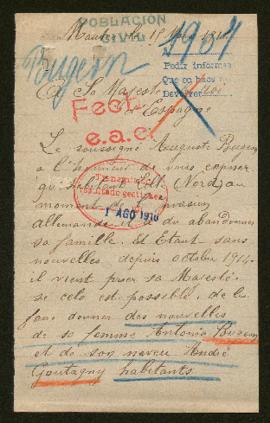 POBLACION
CIVIL
1907
Buzern
Pedir informes
Que en hacer
Devolver
A Sa Majesté
d'Espagne
Fecho
e.a.c.
Le soussigné Auguste
a l'honneur de vous exposer
qu'habitant Lille (Nord) au
moment de l'invasion
allemande il a du abandonner
sa famille. Et Etant sans
nouvelles depuis octobre 1914
il vient prier sa Majesté
si cela est possible, de lui
faire donner des nouvelles
de sa femme Antonia
et de son neveu André
Goutagny habitants
1 AGO 1916